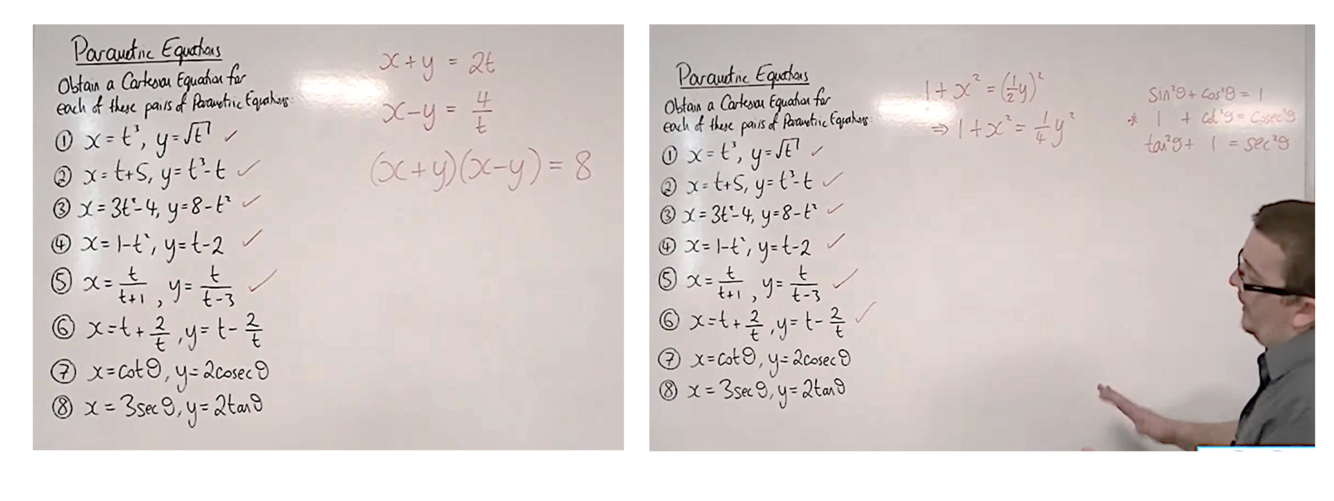 Parametric Equations
Obtain a Cartesian Equation for
each of these pairs of Parametric Equations:
① x = t³, y = √t⁷ ✓
② x = t+5, y = t³-t ✓
③ x = 3t²-4, y = 8-t² ✓
④ x = 1-t², y = t-2 ✓
⑤ x = t/(t+1), y = t/(t-3) ✓
⑥ x = t + 2/t, y = t - 2/t
⑦ x = cotθ, y = 2cosecθ
⑧ x = 3secθ, y = 2tanθ
x + y = 2t
x - y = 4/t
(x+y)(x-y) = 8
Parametric Equations
Obtain a Cartesian Equation for
each of these pairs of Parametric Equations:
① x = t³, y = √t⁷ ✓
② x = t+5, y = t³-t ✓
③ x = 3t²-4, y = 8-t² ✓
④ x = 1-t², y = t-2 ✓
⑤ x = t/(t+1), y = t/(t-3) ✓
⑥ x = t + 2/t, y = t - 2/t ✓
⑦ x = cotθ, y = 2cosecθ
⑧ x = 3secθ, y = 2tanθ
1 + x² = (½y)²
⇒ 1 + x² = ¼y²
sin²θ + cos²θ = 1
* 1 + cot²θ = cosec²θ
tan²θ + 1 = sec²θ